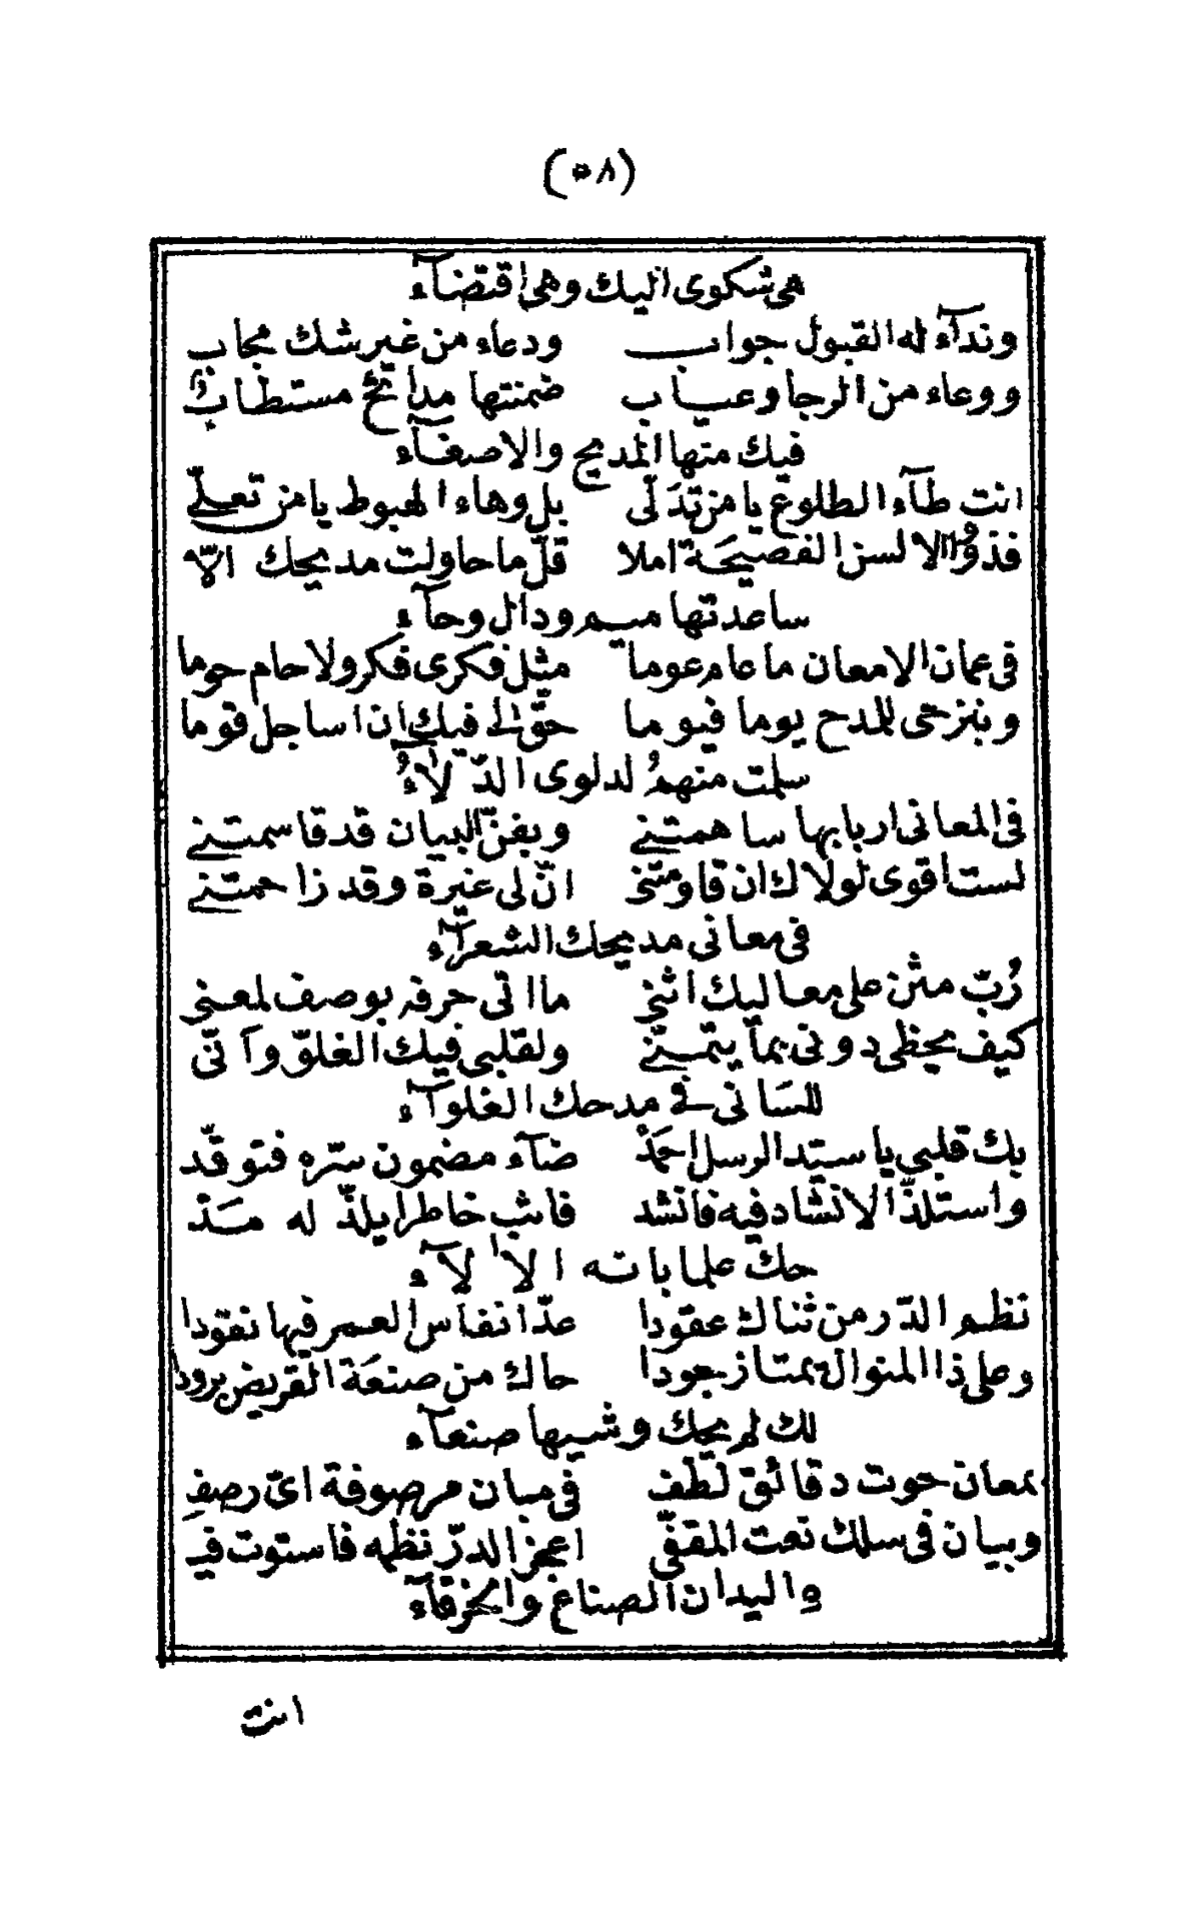 (٥٨)
هى شكوى اليك وهى اقتضآء
وندآء له القبول جواب ودعاء من غير شك مجاب
ووعاء من الرجا وعياب ضمنتها مدائح مستطاب
فيك منها المديح والاصغآء
انت طآء الطلوع يا من تدلّى بل وهاء الهبوط يا من تعلّى
فذووا الالسن الفصيحة املا قلّ ما حاولت مديحك الّا
ساعدتها ميم ودال وحآء
فى عمان الامعان ما عام عوما مثل فكرى فكر ولا حام حوما
وبنزحى للمدح يوما فيوما حقّ لى فيك ان اساجل قوما
سلمت منهم لدلوى الدّلآءُ
فى المعانى اربابها ساهمتنى وبفنّ البيان قد قاسمتنى
لست اقوى لولاك ان قاومتنى انّ لى غيرة وقد زاحمتنى
فى معانى مديحك الشعرآء
رُبّ مثن على معاليك اثنى ما اتى حرفه بوصف لمعنى
كيف يحظى دونى بما يتمنّى ولقلبى فيك الغلوّ وانّى
للسانى فى مدحك الغلوآء
بك قلبى يا سيّد الرسل احمَدْ ضآء مضمون سرّه فتوقّد
واستلذّ الانشاد فيه فانشد فاثب خاطرا يلذّ له مَدْ
حك علما باته الالآء
نظم الدّر من ثناك عقودا عدّ انفاس العمر فيها نقودا
وعلى ذا المنوال يمتاز جودا حاك من صنعَة القريض برودا
لك لم يحك وشيها صنعآء
بمعان حوت دقائق لُطْف فى مبان مرصوفة اىّ رصفِ
وبيان فى سلك نعت المقفّى اعجز الدرّ نظمه فاستوت فيـ
ـهِ اليدان الصناع والخرقآء
انت